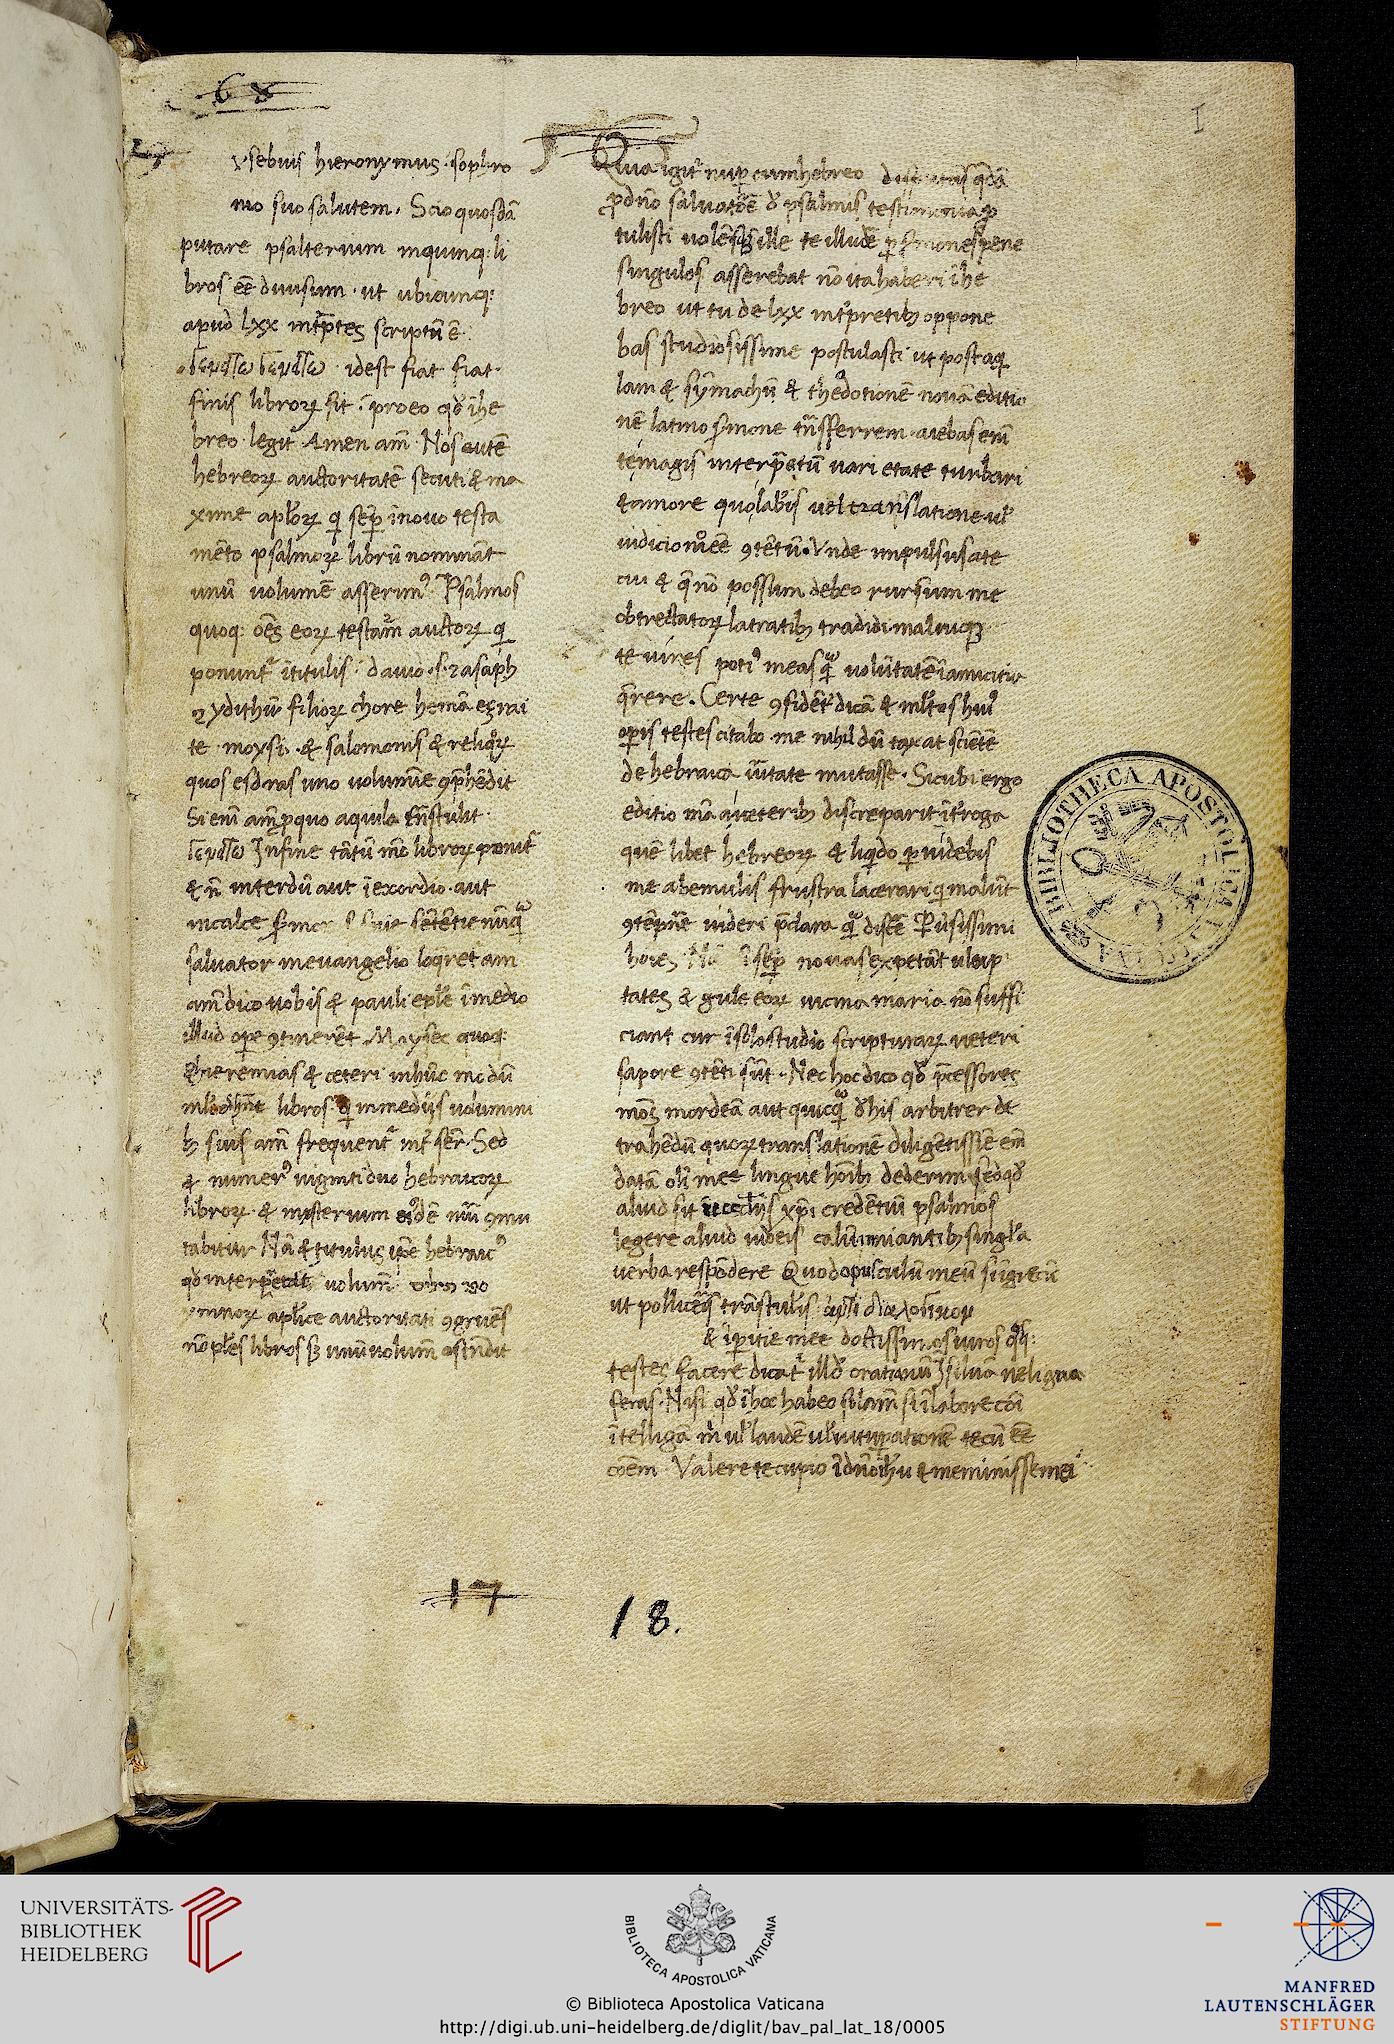 68
I
ysebius hieronymus sophro
nio suo salutem. Scio quosdā
putare psalterium inquinq: li
bros eē diuisum. ut ubicunq:
apud lxx int̄p̄tes scriptū ē.
idest fiat fiat.
finis libroꝝ sit. ī proeo qđ ī he
breo legit̄ Amen am̄. Nos autē
hebreoꝝ auctoritatē secuti & ma
xime apl̄oꝝ q̄ sēp̄ ī nouo testa
mēto psalmoꝝ librū nominant
unū uolumē asserim᾿. Psalmos
quoq: oēs eoꝝ testam̄ auctoꝝ q̄
ponunt᾿ ī titulis. dauid .s. ⁊ asaph
⁊ ydithū filioꝝ chore hemā ezrai
te. moysi. & salomonis & reliqꝝ
quos esdras uno uolumīe ꝯp̄hēdit
Si eni am̄ pquo aquila trāstulit.
In fine tātū m̄e libroꝝ ponit᾿
& n̄ interdū aut ī exordio. aut
incalce sētētie nūq̄
saluator in euangelio loqret am
am̄ dico uobis & pauli ep̄le ī medio
illud ope ꝯtinerēt. Moyses quoq:
& hieremias & ceteri inhūc modū
libros q̄ in medijs uolumini
bꝫ suis am̄ frequent᾿ int̄ ser̄. Sed
& numer᾿ uigintiduo hebraicoꝝ
libroꝝ & misterium eiᵈdē nūi ꝯmu
tabitur Nā & titulus ip̄e hebraic᾿
qđ interp̄tat᾿ uolum̄
ymnoꝝ aplīce auctoritati ꝯgruēs
nō pl̄es libros sꝫ unū uolum̄ ostēdit
Quia igit᾿ nup cum hebreo disputās q̄dā
p dn̄o saluatōe đ psalmis testimonia p
tulisti uolēsqꝫ ille te illud᾿e p s̄mones pene
singulos asserebat nō ita haberi ī he
breo ut tu de lxx int̄pretibꝫ oppone
bas studiosissime postulasti ut post aq̄
lam & sȳmachū & theodotionē nouā editio
nē latino s̄mone trāsferrem. aiebas eni
te magis interp̄tū uarietate turbari
& amore quo labīs uel translatione ul̄
iudicio meo eē ꝯtētū. Unde impulsus ate
cui & q̄ nō possum debeo rursum me
obtrectatoꝝ latratibꝫ tradidi maluiqꝫ
te uires poti᾿ meas q̄ uolūtatē ī amicitia
q̄rere. Certe ꝯfidēt᾿ dicā & ml̄tos hui᾿
opis testes citabo me nihil dū taxat sciētē
de hebraica ūitate mutasse. Sicubi ergo
editio m̄a a ueteribꝫ discreparit īt̄roga
quē libet hebreoꝝ & liq̄do puidebis
me abemulis frustra lacerari q̄ malūt
ꝯtēpn̄e uideri p̄clara q̄ discē Puisissimi
hoīes. Nā sēp nouas expetāt uolup
tates & gule eoꝝ uicina maria nō suffi
ciant cur ī solo studio scripturaꝝ ueteri
sapore ꝯtēti sūt. Nec hoc dico qđ p̄cessores
meos mordeā aut quicq̄ đ his arbitrer de
trahēdū quoꝝ translationē diligētissīe em̄
datā olī mee lingue hoībꝫ dederim sed qđ
aliud sit ī ecclīis xp̄i credētiū psalmos
legere aliud iudeis calūmniantibꝫ singl̄a
uerba respōdere Quod opusculū meū si ī grecū
ut polliceris trāstul̄is
& īpitie mee doctissimos uiros q̄sqꝫ:
testes facere dicat᾿ illđ oratianū Isiluā ne ligna
feras. Nisi qđ ī hoc habeo solam̄ si ī labore cōi
ītelligā m̄ ul̄ laudē ul̄ uitupationē tecū eē
cōem Valere te cupio ī dn̄o ih̄u & meminisse mei
17
18.
BIBLIOTHECA APOSTOLICA VATICANA
UNIVERSITÄTS-
BIBLIOTHEK
HEIDELBERG
BIBLIOTECA APOSTOLICA VATICANA
MANFRED
LAUTENSCHLÄGER
STIFTUNG
© Biblioteca Apostolica Vaticana
http://digi.ub.uni-heidelberg.de/diglit/bav_pal_lat_18/0005